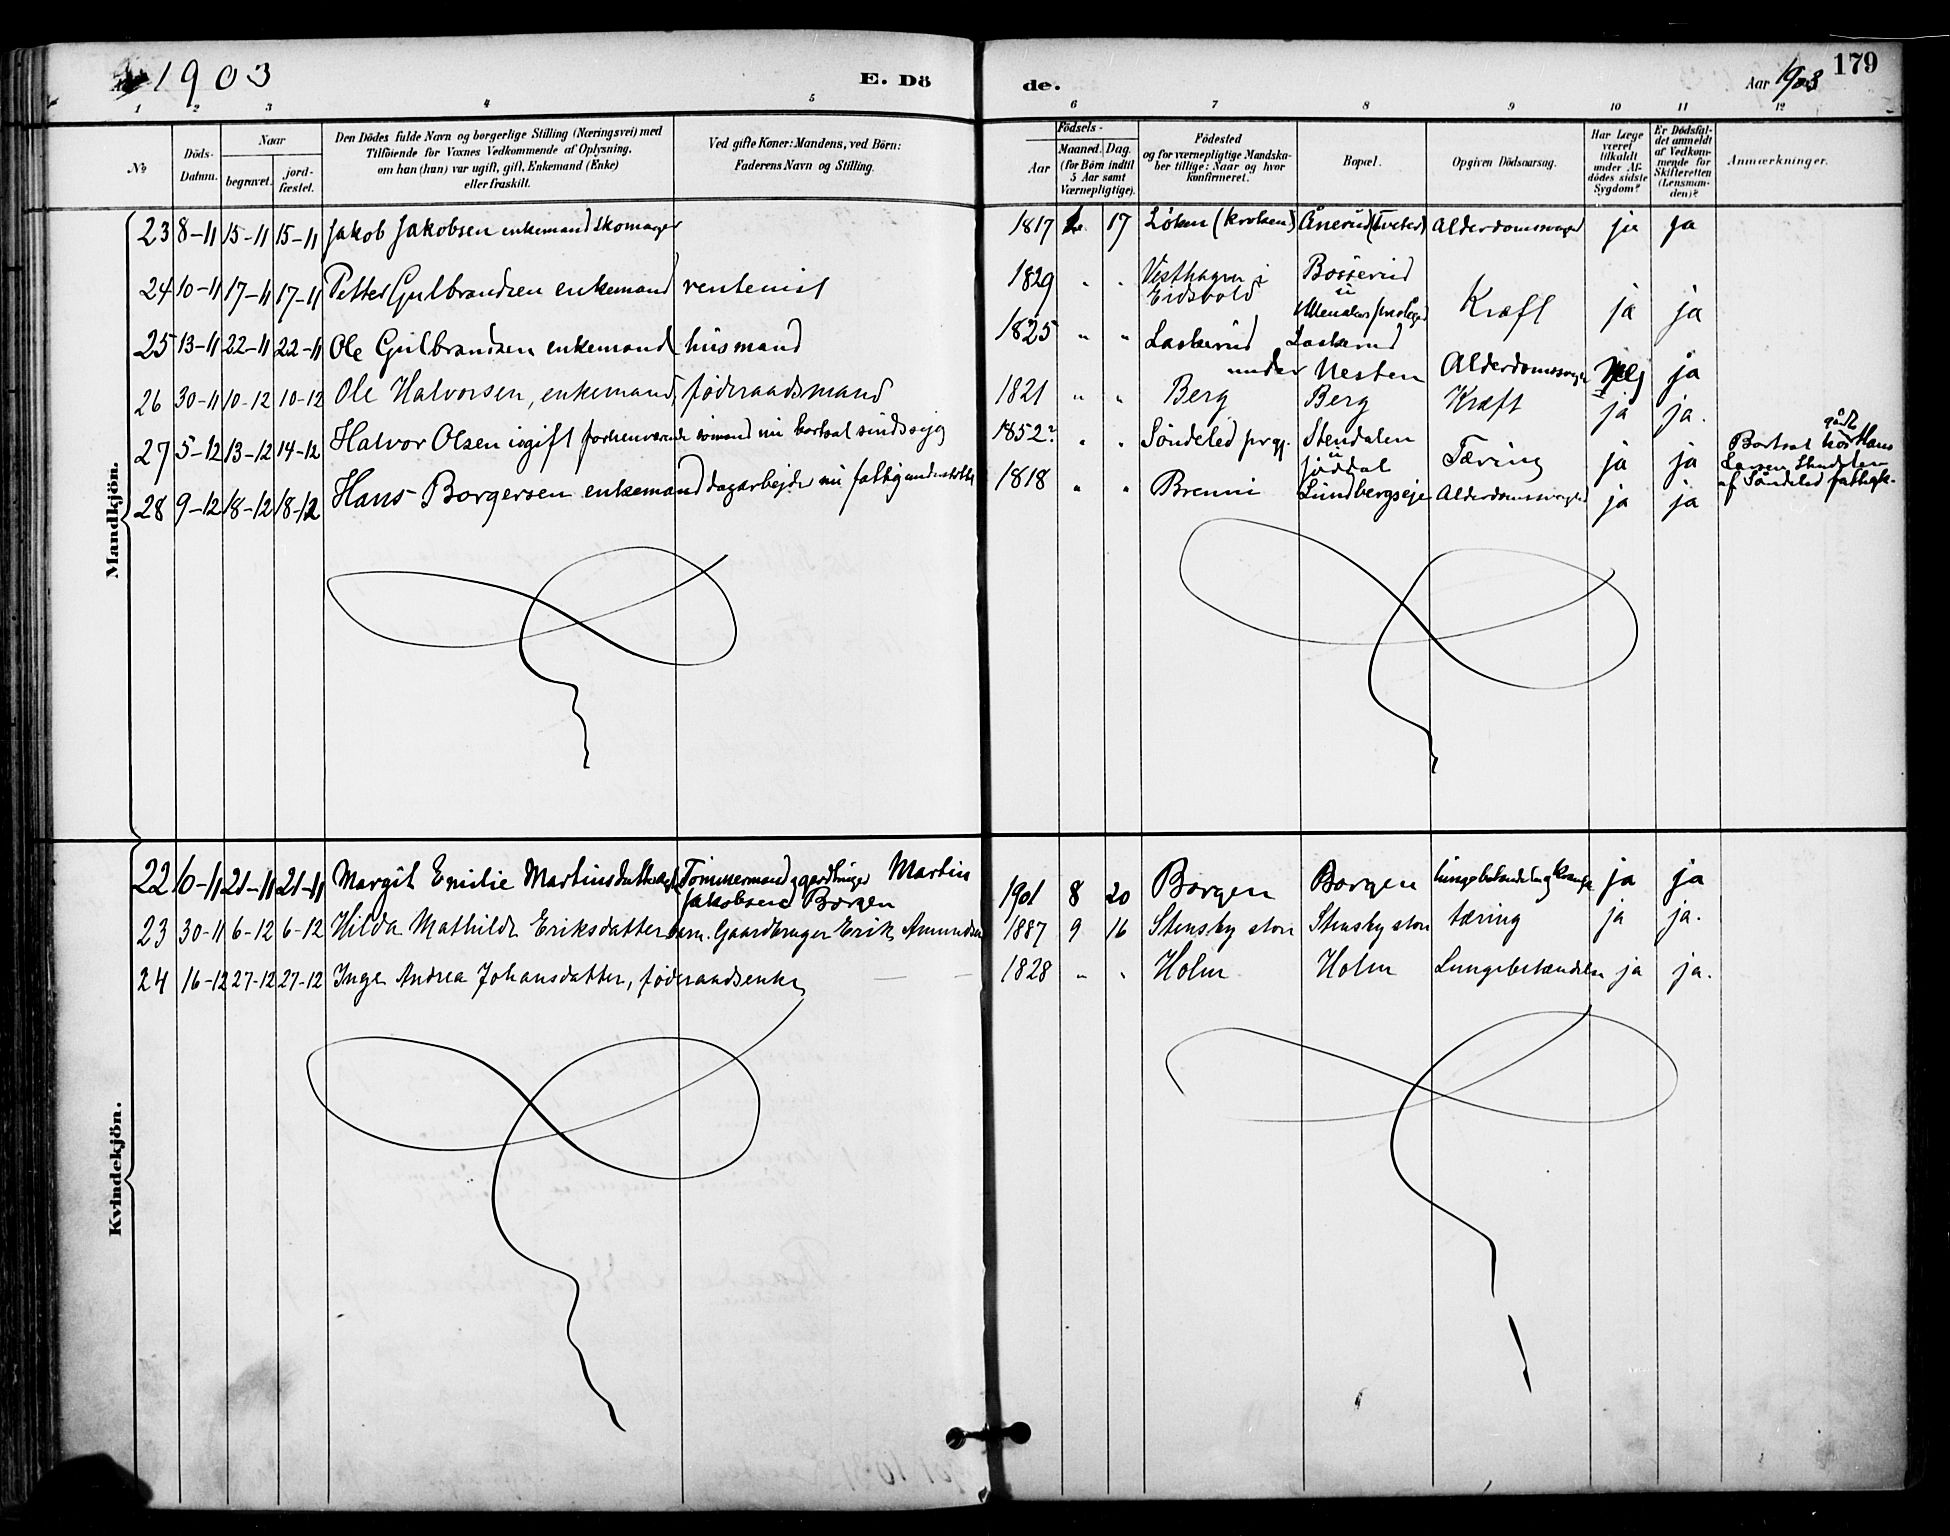 1903
E. Dö
de.
Aar 1903
179
1 2 3 4 5 6 7 8 9 10 11 12
No
Döds-Datum.
Naar
begravet.
jord-fæstet.
Den Dödes fulde Navn og borgerlige Stilling (Næringsvei) med
Tilföiende for Voxnes Vedkommende af Oplysning,
om han (hun) var ugift, gift, Enkemand (Enke)
eller fraskilt.
Ved gifte Koner: Mandens, ved Börn:
Faderens Navn og Stilling.
Födsels-
Aar
Maaned. Dag.
(for Börn indtil
5 Aar samt
Værnepligtige).
Födested
og for værnepligtige Mandska-
ber tillige: Naar og hvor
konfirmeret.
Bopæl.
Opgiven Dödsaarsag.
Har Læge
været
tilkaldt
under Af-
dödes sidste
Sygdom?
Er Dödsfal-
det anmeldt
af Vedkom-
mende for
Skifteretten
(Lensman-
den)?
Anmærkninger.
Mandkjön.
23 8-11 15-11 15-11 Jakob Jakobsen enkemand skomager 1817 17 Løken Ånerud Alderdomssvaghed ja ja
24 10-11 17-11 17-11 Petter Gulbrandsen enkemand rentenist 1829 " " Vesthagen i Eidsvold Bosserud Kræft ja ja
25 13-11 22-11 22-11 Ole Gulbrandsen enkemand husmand 1825 " " Laskerud Laskerud under Nesten Alderdomssvaghed Nej ja
26 30-11 10-12 10-12 Ole Halvorsen, enkemand, føderaadsmand 1821 " " Berg Berg Kræft ja ja.
27 5-12 13-12 14-12 Halvor Olsen ugift forhenværende sømand nu bortsat sindssyg 1852? " " Söndeled prgj. Stendalen i Tæring ja ja Bortsat hos Hans Larsen Stendalen af Söndeled fattigk.
28 9-12 18-12 18-12 Hans Borgersen enkemand dagarbejder nu fattigunderstøttet 1818 " " Brenni Lundbergseje Alderdomssvaghed ja ja
Kvindekjön.
22 6-11 21-11 21-11 Margit Emilie Martinsdatter Tømmermand gardbruger Martin Jakobsen Borgen 1901 8 20 Borgen Borgen lungebetændelse og krampe ja ja
23 30-11 6-12 6-12 Hilda Mathilde Eriksdatter barn. Gaardbruger Erik Amundsen 1887 9 16 Stensby store Stensby store tæring ja ja.
24 16-12 27-12 27-12 Inger Andrea Johansdatter, føderaadsenke — — 1828 " " Holm Holm Lungebetændelse ja ja.